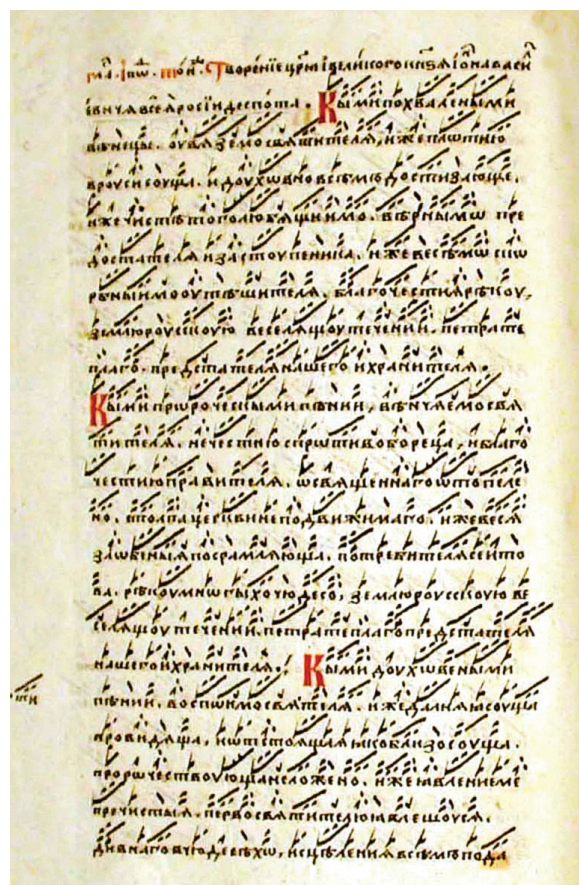 гла в҃. Творение црѧ і великого кнѕѧ іѡана васи
евичѧ всеѧ росіи деспота. Кыми похвалеными
вѣнецы. оувѧземо свѧтителѧ, иже плотию
вроуси соуща. и доуховно всѣмъ достизающе.
иже чистѣ того любѧщиимо. вѣрнымѡ пре
достателѧ и застоупеника. иже весѣмѡ скѡ
рбныимо оутѣшителѧ. благочестиѧ рѣкоу,
землю роусскоую веселѧщоу течении. петра те
плаго. предстателѧ нашего и хранителѧ.
Кыми пророческыми пѣнии, вѣнчаемо свѧ
тителѧ. нечестию спротивобореца, и благо
честию правителѧ. ѡсвѧщеннаго ѡтопеле
но. столпа церкви неподвижимаго. иже весѧ
зловеныѧ посрамлѧюща. потребителѧ сеито
ва. рѣкоу многы хочюдесо, землю роусскоую ве
селѧщоу течении. петра теплаго предстателѧ
нашего и хранителѧ. Кыми доуховеными
пѣнии. воспоимо свѧтителѧ. иже далнѧѧ соуща
провидѧща, и ѡтстоѧщаѧ ѩко близо соуща.
пророчествоующа неложено. иже ѩвление ме
пречистыѧ. перво свѧтителю ѩвлешоусѧ.
дивнаго вчюдесѣхо, исцѣлениѧ всѣмъ пода